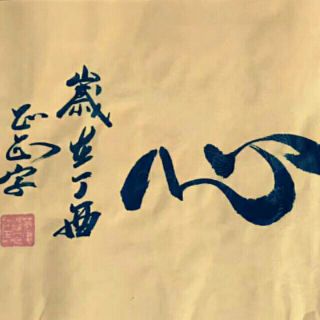 心
歲在丁酉
字